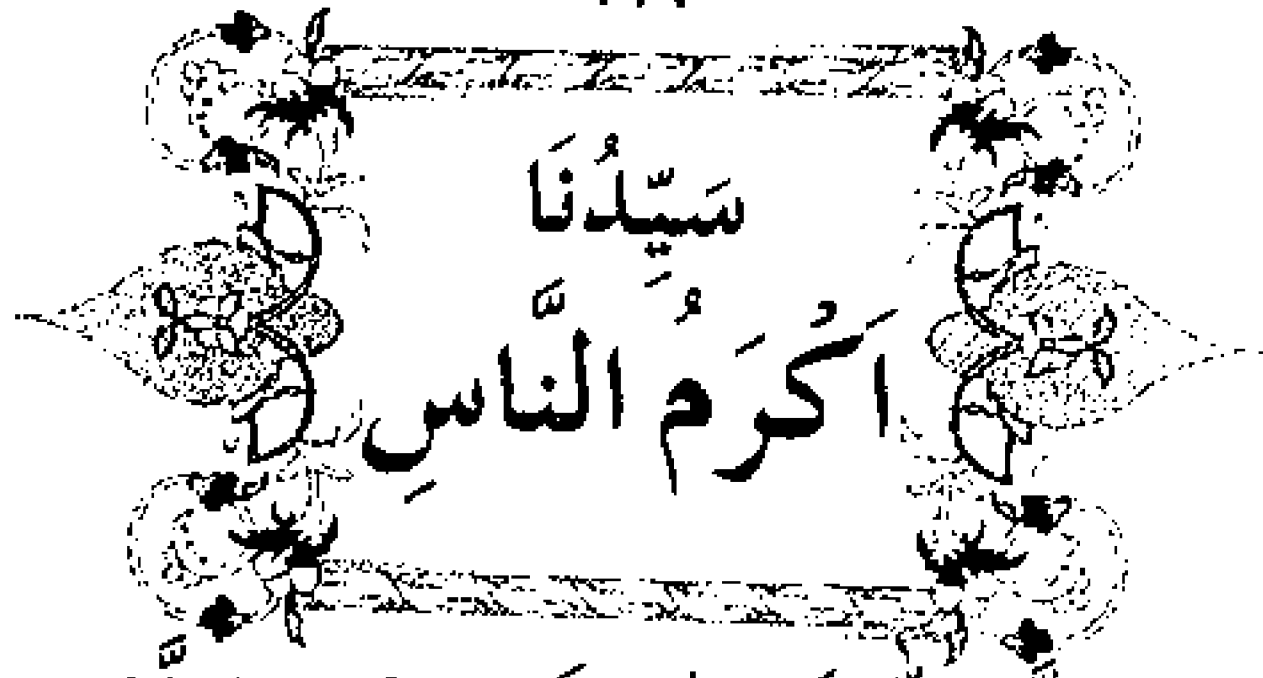 سَيِّدُنَا
اَكْرَمُ النَّاسِ